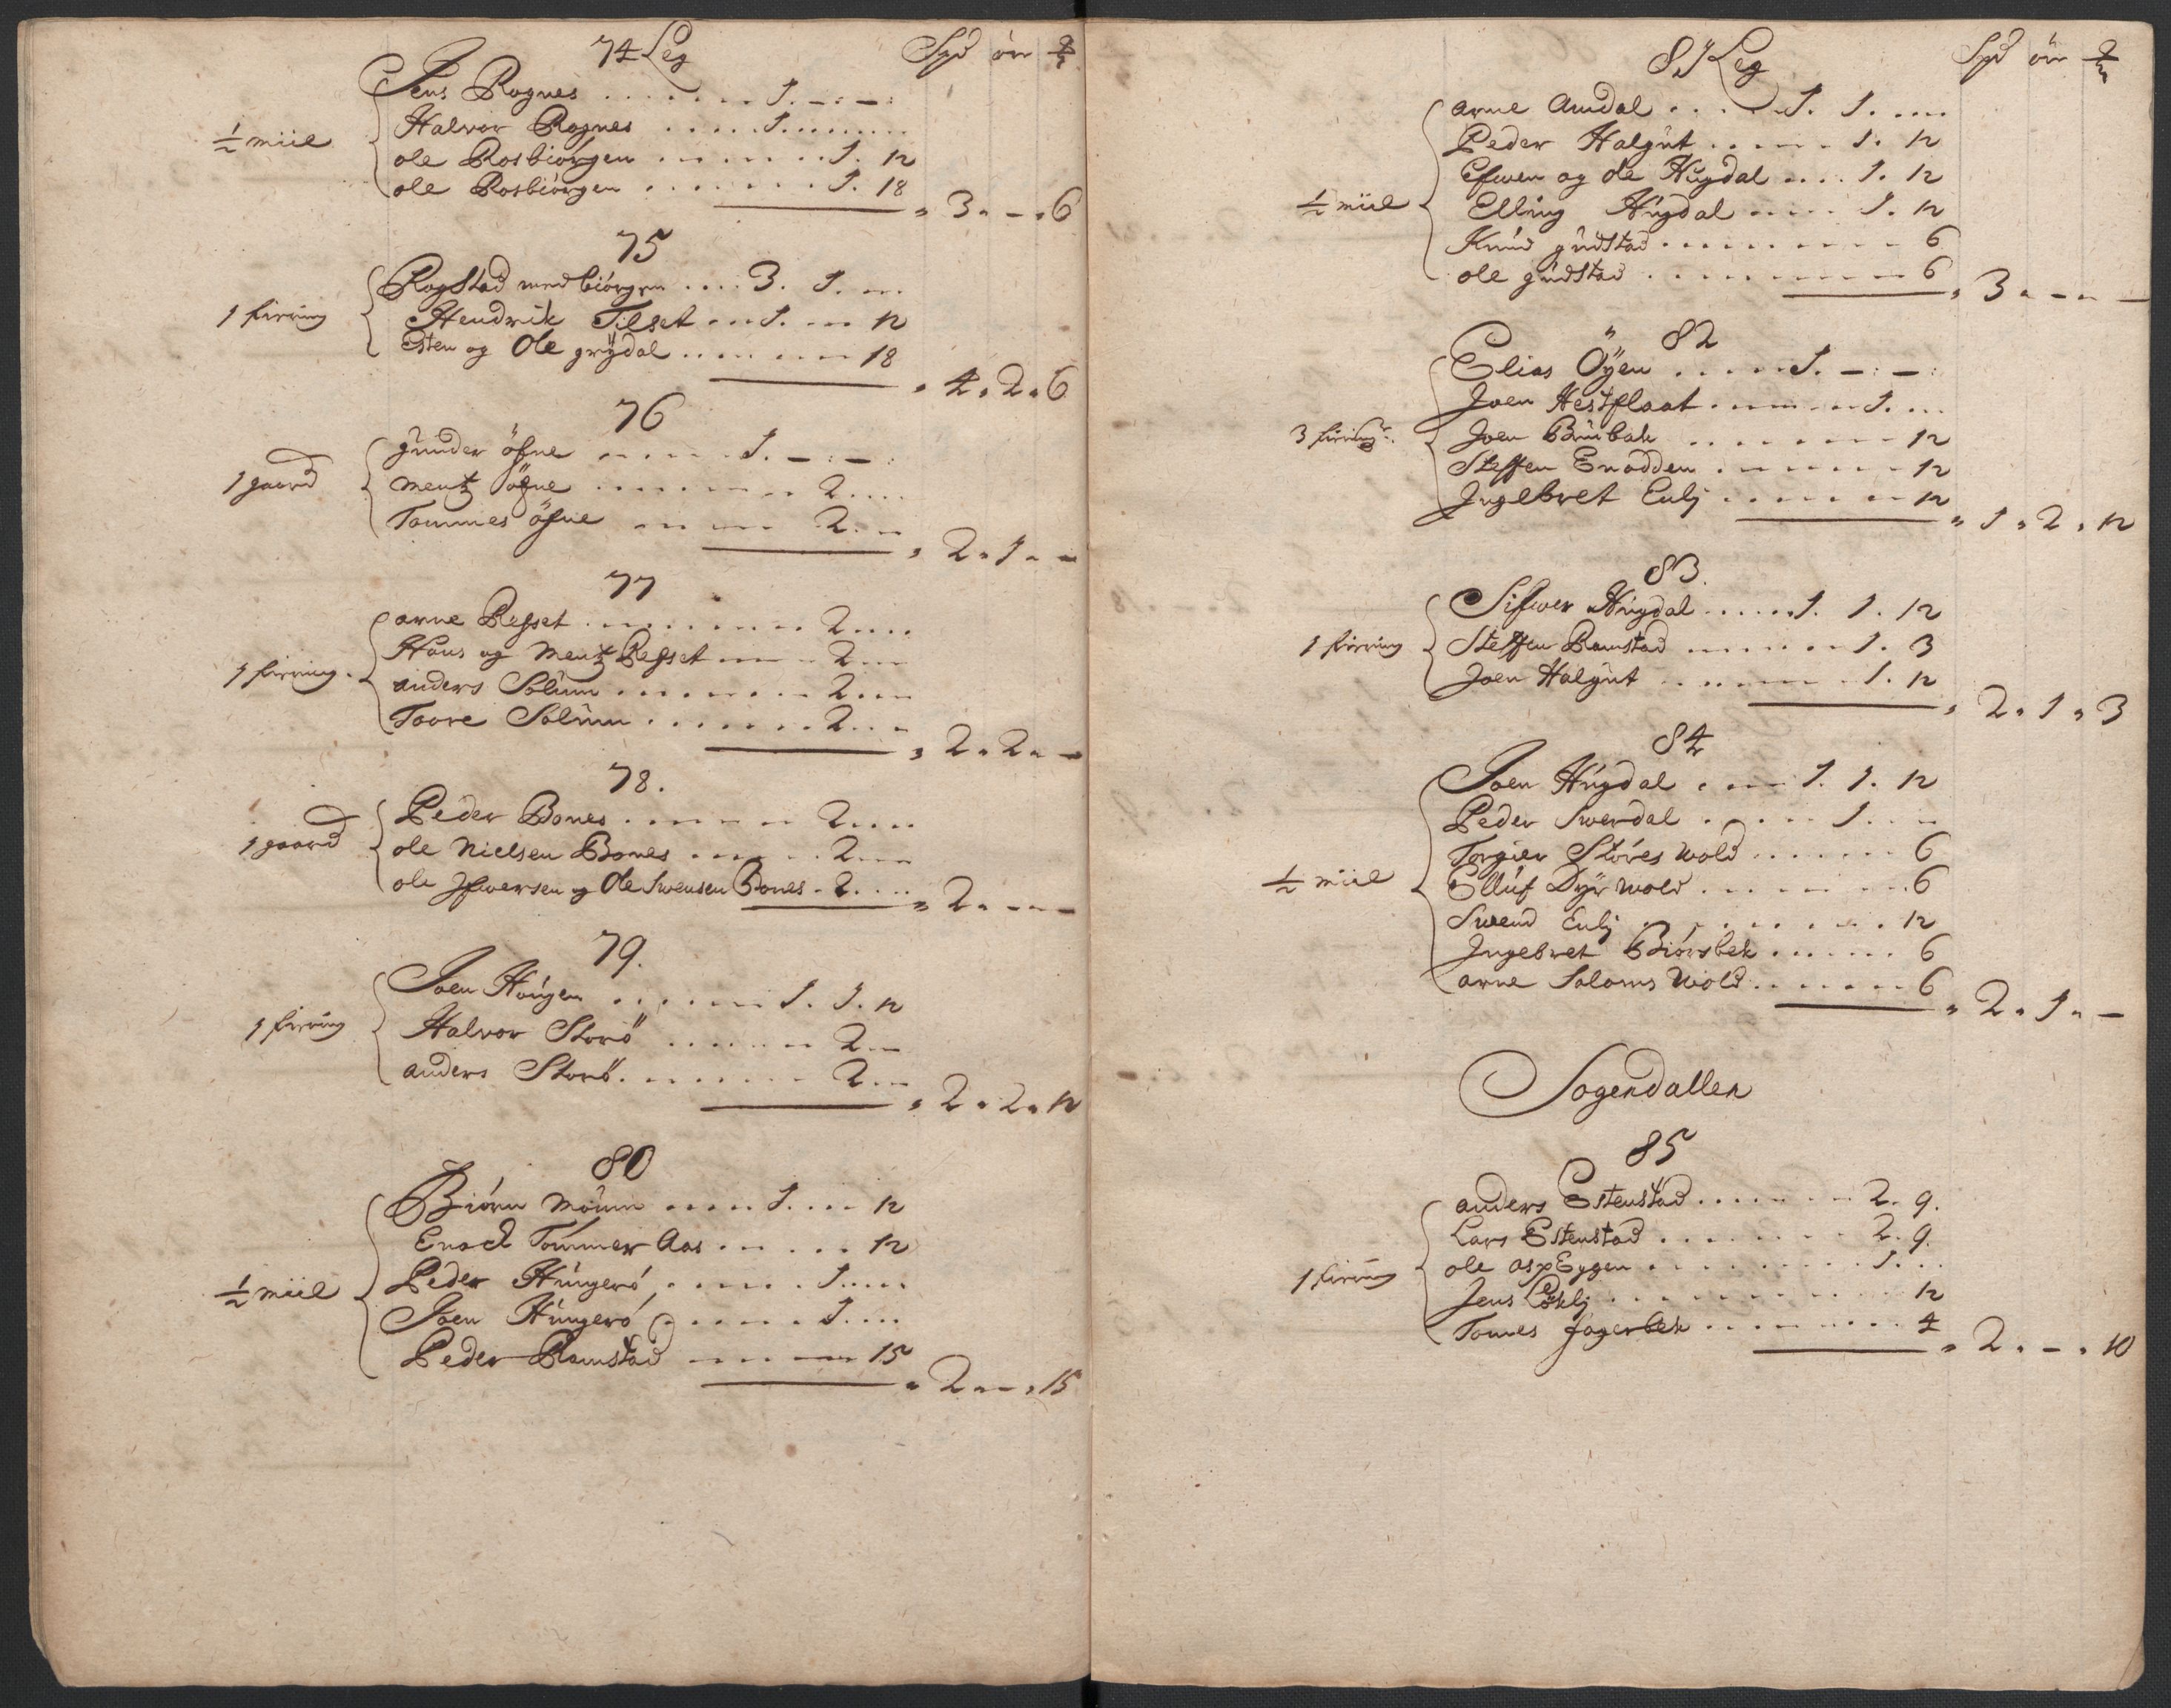 74 Leg Spd ör
Jens Rognes . . . . . . . 1. – : – :
Halvor Rognes . . . . 1. . . . .
½ miil
ole Rosbiörgen . . . . . . . 1. 12
ole Rosbiörgen . . . . . . . 1. 18
" 3 " – " 6
75
Rogstad med biörgen . . . . 3. 1. . .
1 firring
Hendrik Tilset . . . 1. . . . 12
Esten og Ole grÿdal . . . . . . . 18
" 4 " 2 " 6
76
gunder öfne . . . . . 1. – : – :
1 gaard
Mentz öfne . . . . . . . 2 . . . .
Tommes öfne . . . . . 2 . . .
" 2 " 1 " –
77
arne Resset . . . . . . . . 2 . . . .
Hans og Mentz Resset . . . . 2 . . .
1 firring.
anders Solum . . . . . . . 2 . . . .
Toore Solum . . . . . . . 2 . . .
" 2 " 2 " –
78.
Peder Bones . . . . . . 2 . . . .
1 gaard
ole Nielsen Bones . . . . . 2 . . .
ole Ifwersen og Ole Swensen Bones . 2 . . . .
" 2 " – " –
79.
Joen Hougen . . . . . . . 1. 1. 12
1 firring
Halvor Storö . . . . . . 2 . .
anders Storö . . . . . . . . 2 . .
" 2 " 2 " 12
80
Biörn Moum . . . . . 1. . . . 12
Enock Tömmer Aas . . . . . . 12
½ miil
Peder Hüngerö . . . . . . 1. . . .
Joen Hüngerö . . . . . . 1. . . .
Peder Ramstad . . . . . . 15
" 2 " – " 15
81 Leg Spd ör
arne Amdal . . . . . 1. 1. . . .
Peder Halgut . . . . . 1. 12
Efwen og ole Hugdal . . . 1. 12
½ miil
Elling Hugdal . . . . . 1. 12
Knud gudstad . . . . . . . . . 6
ole gudstad . . . . . . . . . 6
" 3 " – " –
82
Elias Öÿen . . . . . 1. – : – :
Joen Hestflaat . . . . . . 1. . . .
3 firring:
Joen Buubak . . . . . . . 12
Steffen Enodden . . . . . . . 12
Ingebret Enlj . . . . . . . 12
" 1 " 2 " 12
83.
Sifwer Hugdal . . . . . . 1. 1. 12
1 firring
Steffen Ramstad . . . . . . 1. 3
Joen Halgut . . . . . . . 1. 12
" 2 " 1 " 3
84
Joen Hugdal . . . . 1. 1. 12
Peder Swerdal . . . . . 1. . . .
Torgier Störes Wold . . . . . . 6
½ miil
Elluf Dÿr Wold . . . . . . . 6
Swend Enlj . . . . . . . . 12
Ingebret Biörsbek . . . . . . 6
arne Saloms Wold . . . . . . . 6
" 2 " 1 " –
Sogendallen
85
anders Estenstad . . . . . . . 2. 9.
Lars Estenstad . . . . . . . . 2. 9.
ole aspEggen . . . . . . . . . 1. . .
1 firring
Jens . . . . . . . . . . . . 12
Tomes fagerbek . . . . . . . . 4
" 2 " – " 10